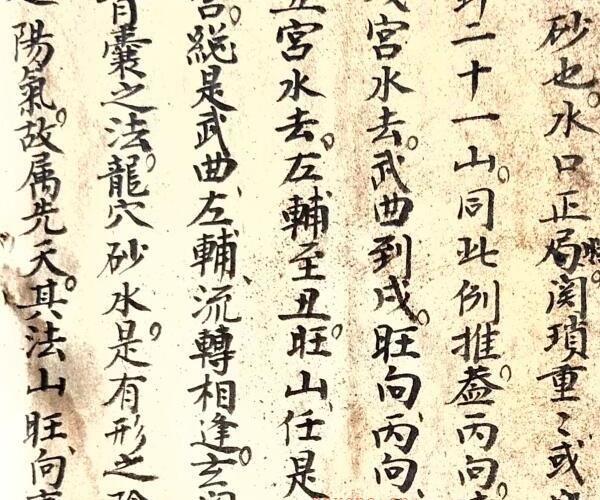 砂也。水口正局関瑣重〻或
二十一山。同此例推。葢丙向。
宮水去。武曲到戌。旺向丙向
宮水去。左輔至丑。旺山任是
宮。総是武曲左輔。流轉相逢。玄
囊之法。龍穴砂水。是有形之
陽氣。故属先天。其法山旺向